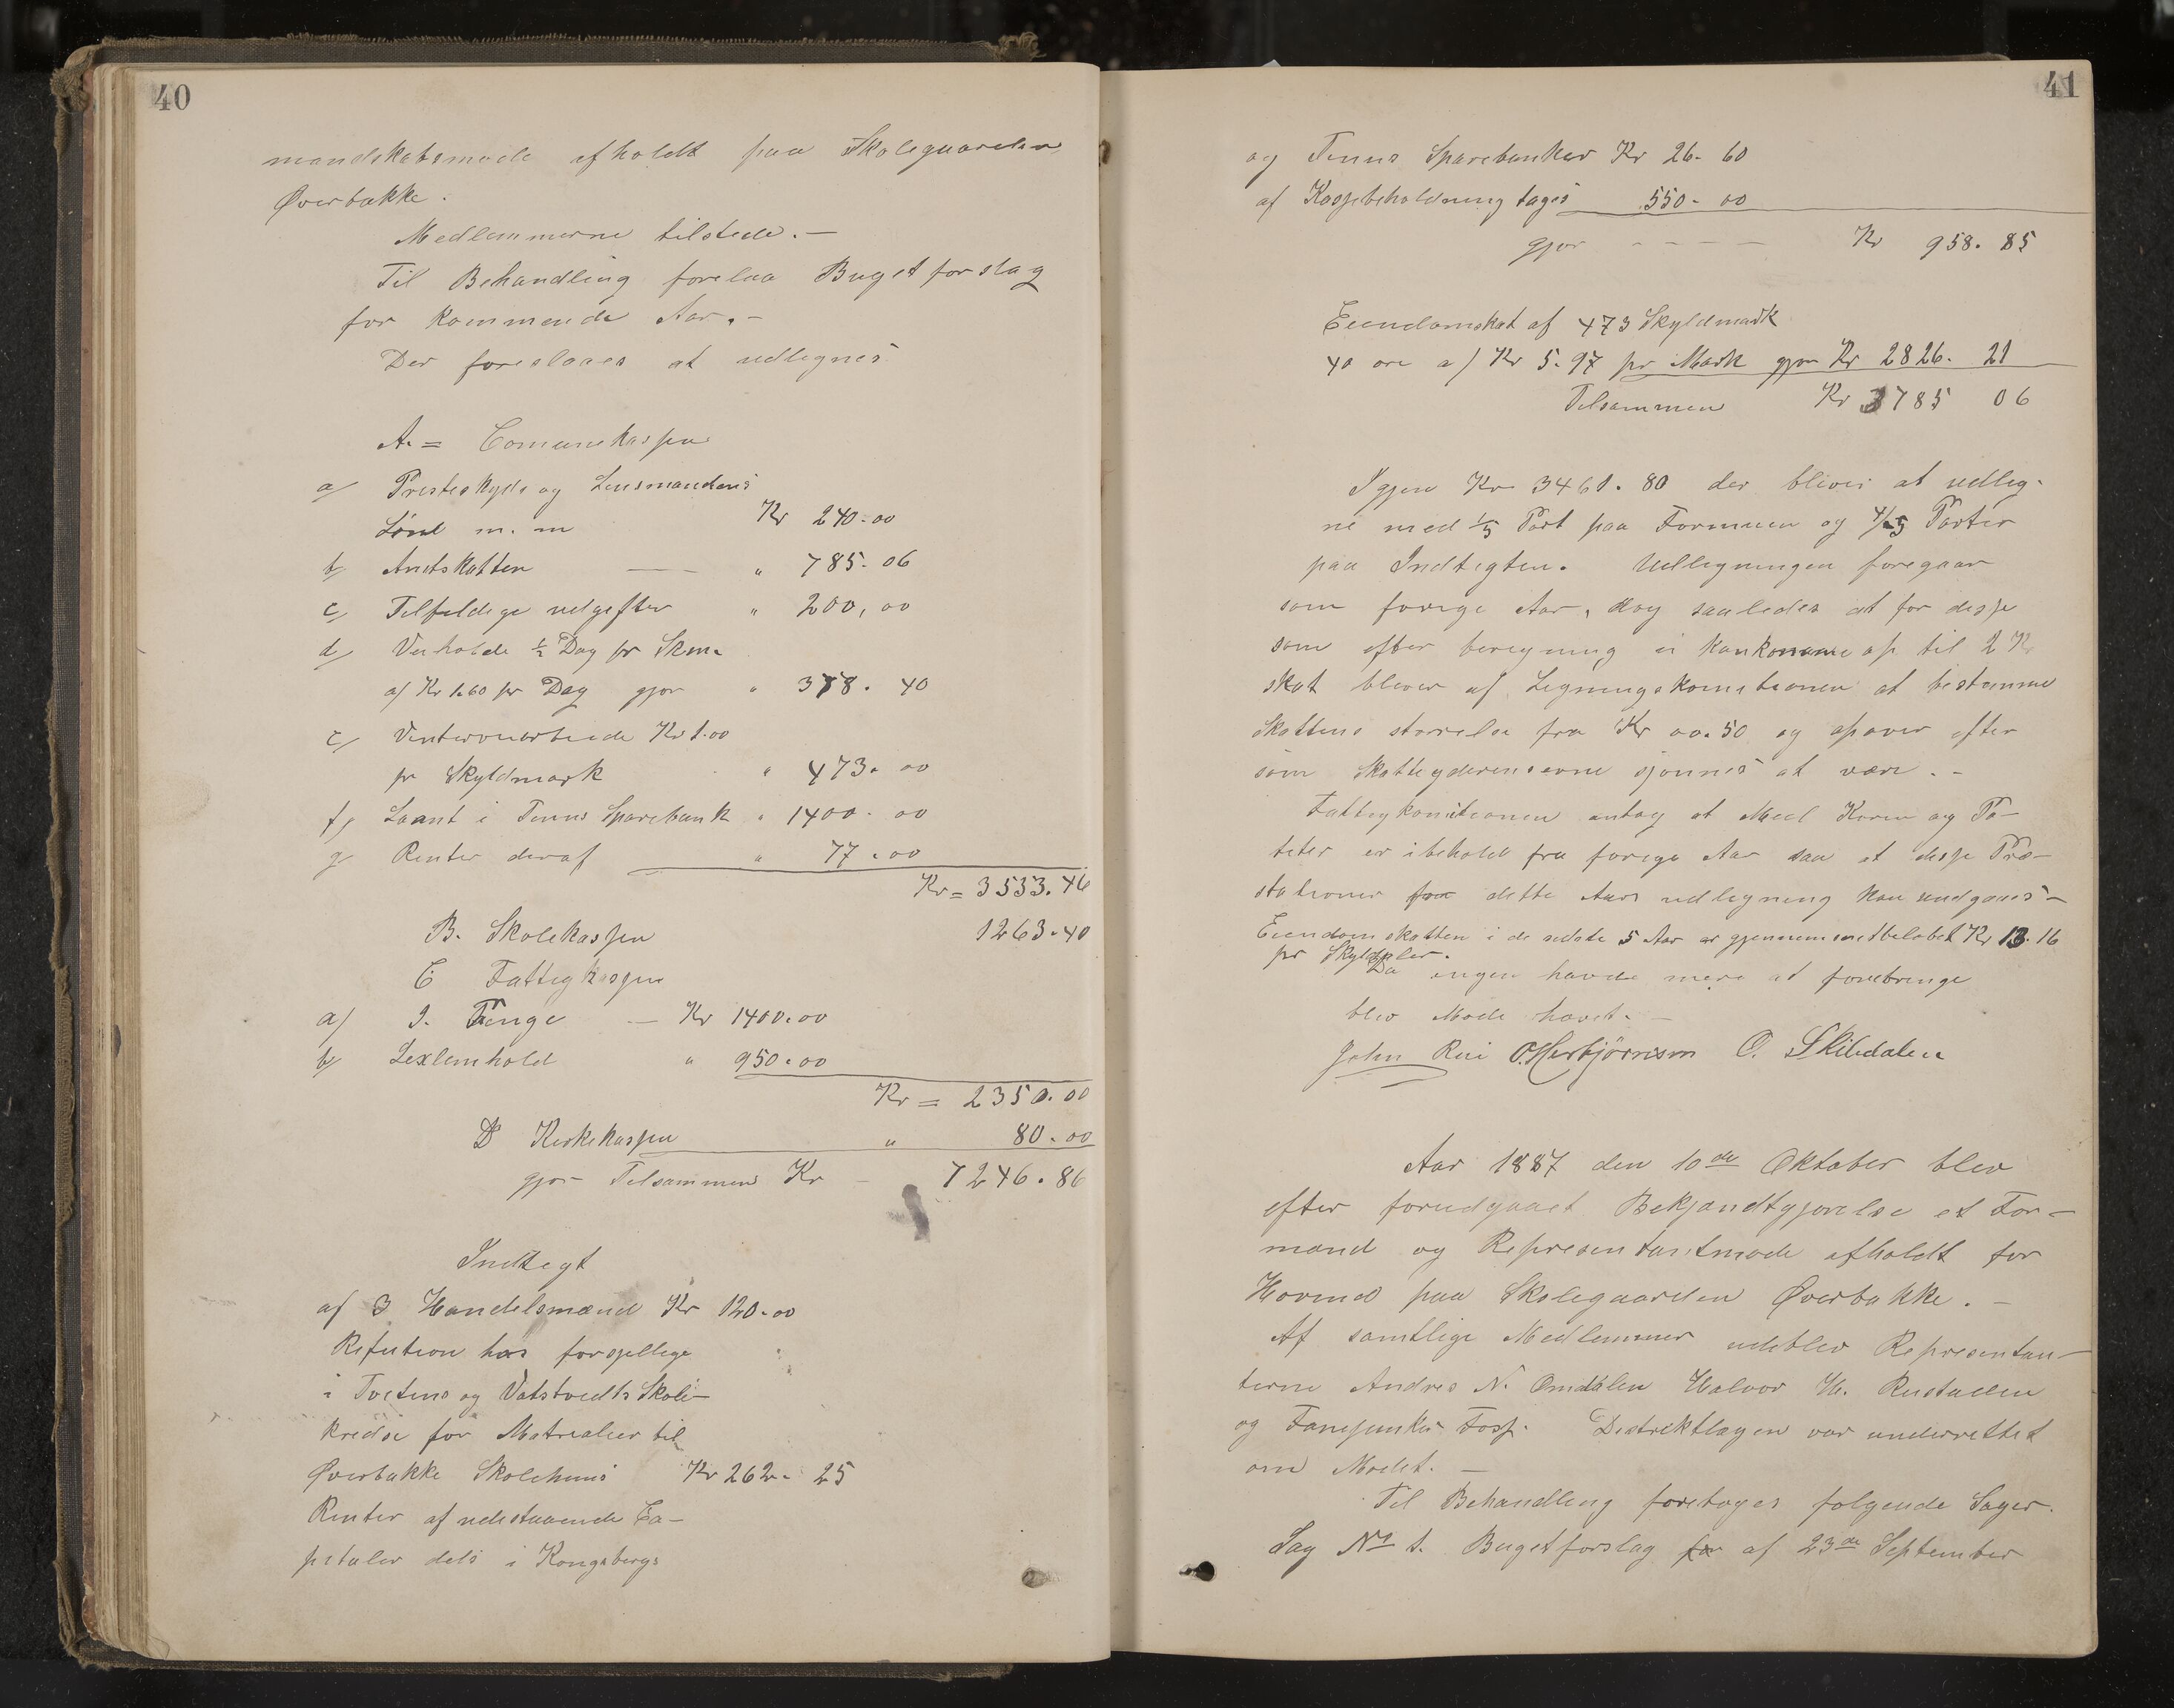 40
mandskabsmøde afholdt paa Skolegaarden
Øverbakke.
Medlemmerne tilstede. —
Til Behandling forelaa Bugetforslag
for kommende Aar. —
Der foreslaaes at udlignes
A. = Comunekassen
a/ Presteskyds og Lensmandens
Lønd m. m Kr 240.00
b/ Amtskatten — — " 785.06
c/ Tilfeldige udgifter " 200,00
d/ Veiholde ½ Dag pr Skm.
af Kr 1.60 pr Dag gjør " 378.40
e/ Vinterveiarbeide Kr 1.00
pr Skyldmark " 473.00
f/ Laant i Tinns Sparebank " 1400.00
g/ Renter deraf " 77.00
Kr = 3533.46
B. Skolekassen 1263.40
C Fattigkassen
a/ I. Penge — Kr 1400.00
b/ Lexlemhold " 950.00
Kr = 2350.00
D Kirkekassen " 80.00
gjør Tilsammen Kr — 7246.86
Indtegt
af 3 Handelsmænd Kr 120.00
Refution hos forsjellige
i Tveitens og Vatstvedts Skole-
kredse for Matrealier til
Øverbakke Skolehuus Kr 262. 25
Renter af udestaaende Ca-
pitaler dels i Kongsbergs
41
og Tinns Sparebanker Kr 26. 60
af Kassebeholdning tages 550. 00
gjør - - - - Kr 958. 85
Eiendomskat af 473 Skyldmark
40 øre af Kr 5.97 pr Mark gjør Kr 2826. 21
Tilsammen Kr 3785 06
Igjen Kr 3461.80 der bliver at udlig-
ne med 1/5 Part paa Formuen og 4/5 Parter
paa Indtegten. Udligningen foregaar
som forige Aar, dog saaledes at for disse
som efter beregning ei kan komme op til 2 Kr
skat bliver af Ligningskomitionen at bestemme
Skattens størrelse fra Kr 00.50 og opover efter
som Skatteyderens evne sjønnes at være. —
Fattigkomitionen antog at Med Korn og Po-
teter er i behold fra forige Aar saa at disse Præ-
stationer fra dette Aars udligning kan undgaaes —
Eiendomskatten i de sidste 5 Aar er gjennemsnitbeløbet Kr 13.16
pr Skylddaler.
Da ingen havde mere at forebringe
blev Møde hævet. —
John Rui O. Herbjørnsen O. Skibdalen
Aar 1887 den 10de Oktober blev
efter forudgaaet Bekjandtgjørelse et For-
mand og Representantmøde afholdt for
Hovind paa Skolegaarden Øverbakke. —
Af samtlige Medlemmer udeblev Representan-
terne Andres N. Omdalen Halvor H. Rustaden
og Fanejunker Foss. Distriktlægen var underrettet
om Mødet. —
Til Behandling foretoges følgende Sager.
Sag No 1. Bugetforslag for af 23de September